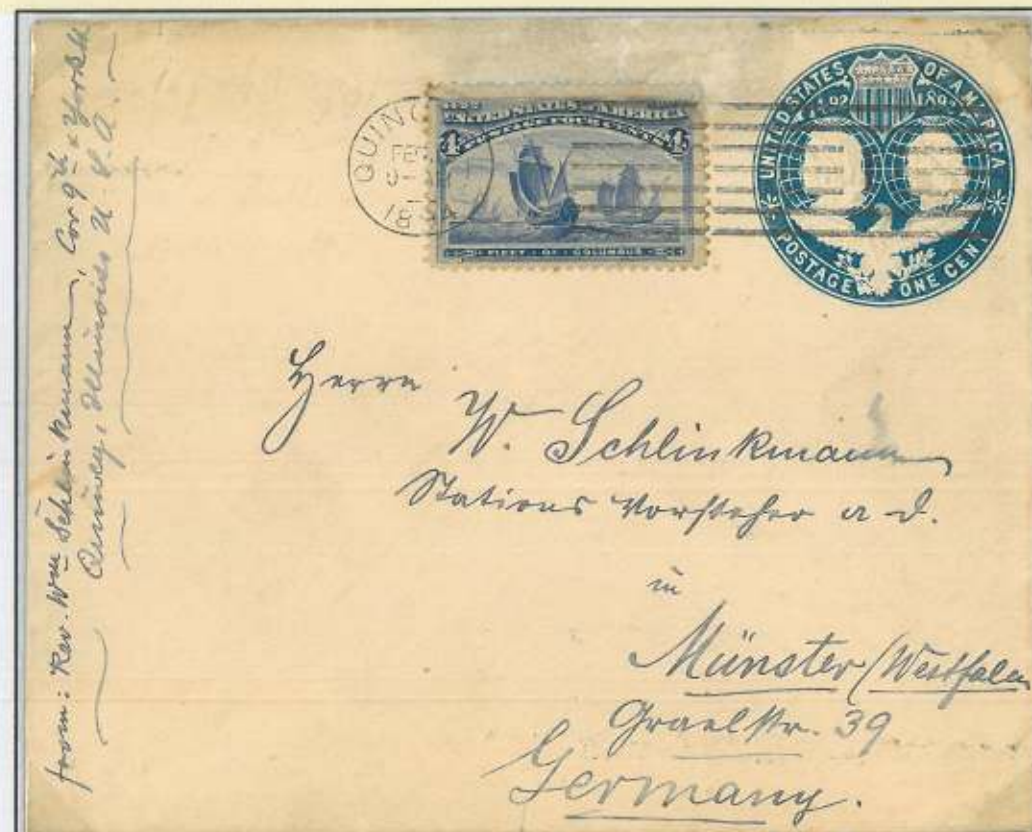 from: Rev. Wm Schlinkmann, Cor 9th & York St
Quincy, Illinois U.S.A.
QUINC
FEB
18
UNITED STATES OF AMERICA
POSTAGE FOUR CENTS
4 4
FLEET OF COLUMBUS
UNITED STATES OF AMERICA
POSTAGE ONE CENT
Herrn
W. Schlinkmann
Stations Vorsteher a D.
in
Münster (Westfalen
Graelstr. 39
Germany.